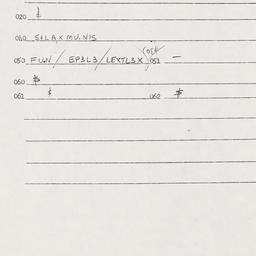 020 $
040 S+LAXMU.NIS
050 FUN/ EP3L3/LEXTL3X 051 —
060 $
061 $ 062 $